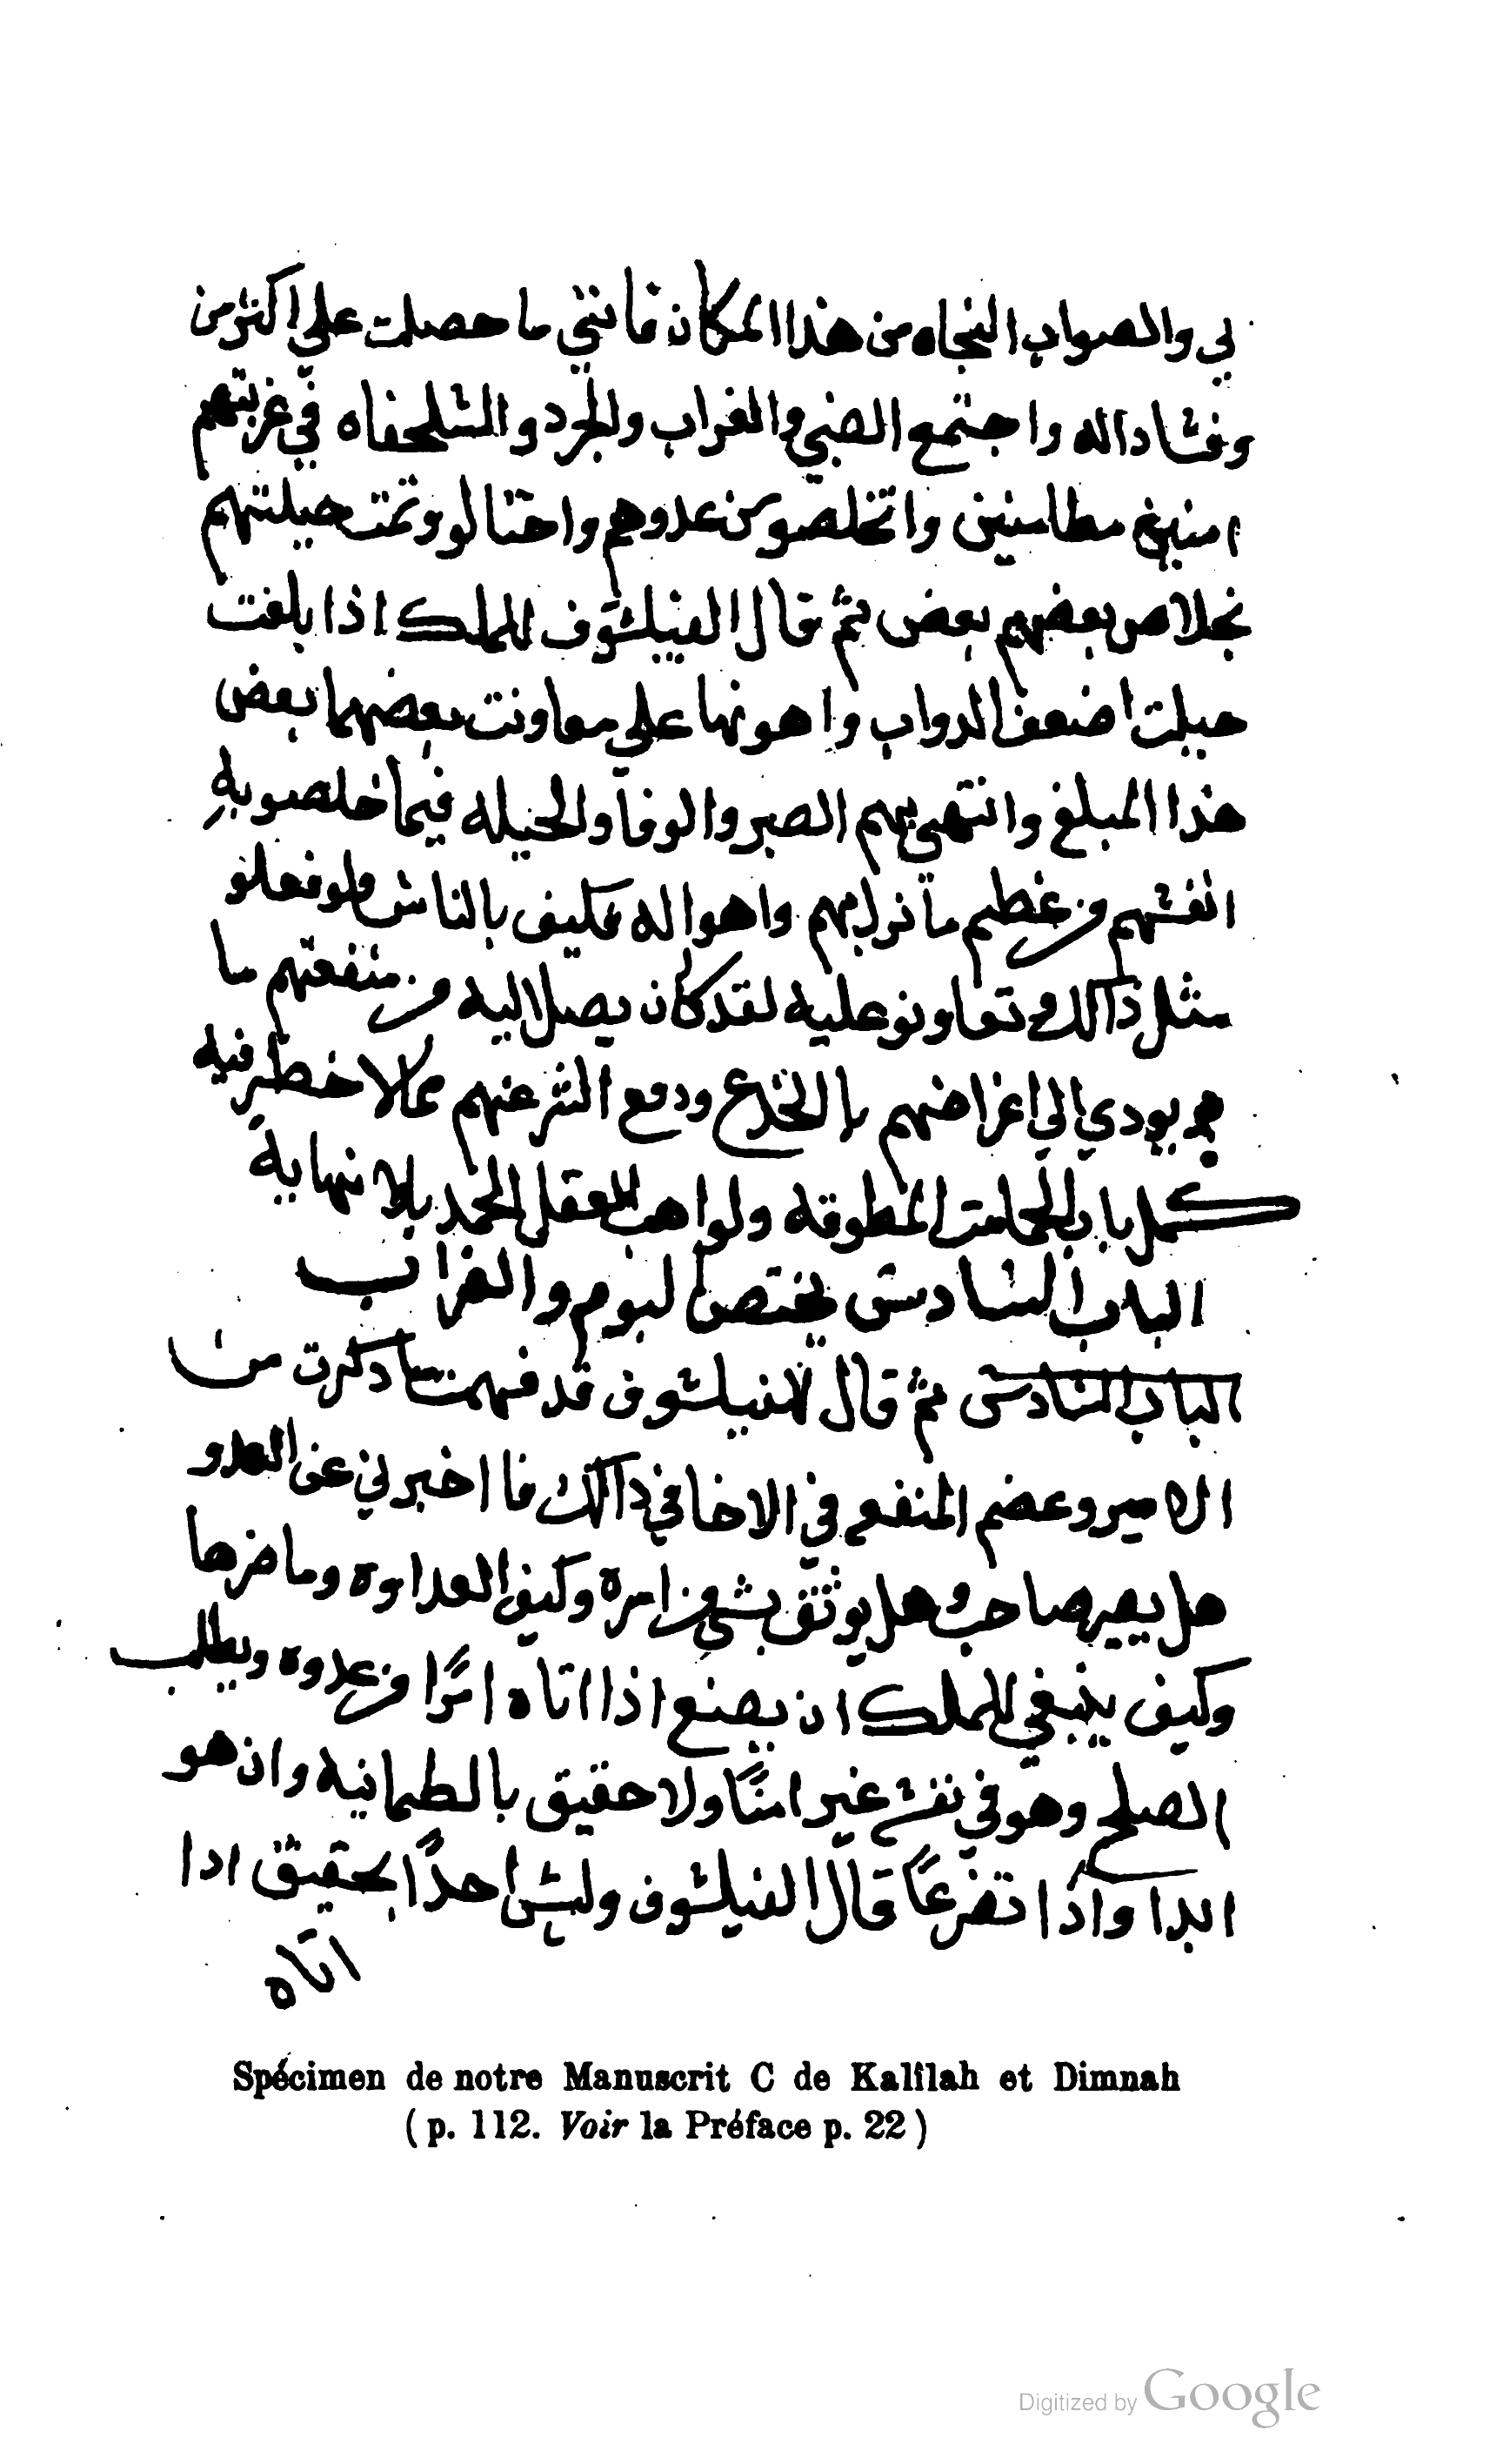 لي والصواب النجاه من هذا المكان فانني ما حصلت علي اكثر من
وفشاد اله واجتمع الضبي والغراب والجرد والشلحفاه في غربتهم
امنين مطامنين واتخلصو من عدوهم واحتالو وتمت حيلتهم
بخلاص بعضهم بعض ثم قال الفيلشوف للملك اذا بلغت
حيلت اضعف الدواب واهونها علي معاونت بعضهما بعض
هذا المبلغ وانتهي بهم الصبر والوفا والحيله فيما خلصو به
انفشهم من عظيم ما نزل بهم واهواله فكيف بالناش ولو فعلو
مثل ذالك وتعاونو عليه لقد كان يصل اليه من منفعتهم ما
يودي الي اغراضهم بالخدع ودفع الشر عنهم مما لا خطر فيه
كمل باب الحمامت المطوقه ولواهب العقل الحمد بلا نهاية
الباب الشادش يختص البوم والغراب
الباب الشادش ثم قال للفيلشوف قد فهمت ما دكرت من
الامير وعضم المنفع في الاخا في ذالك فا اخبرني عن العدو
هل يصير صاحب وهل يوثق بشي من امره وكيف العداوه وما ضرها
وكيف ينبغي للملك ان يصنع اذا اتاه امرًا من عدوه ويطلب
الصلح وهو في نفشه غير امنًا ولا حقيق بالطمانيه وان هو
ابدا واذا تضرعًا قال الفيلشوف وليش احدًا بحقيق ادا
اتاه
Spécimen de notre Manuscrit C de Kalîlah et Dimnah
(p. 112. Voir la Préface p. 22)
Digitized by Google